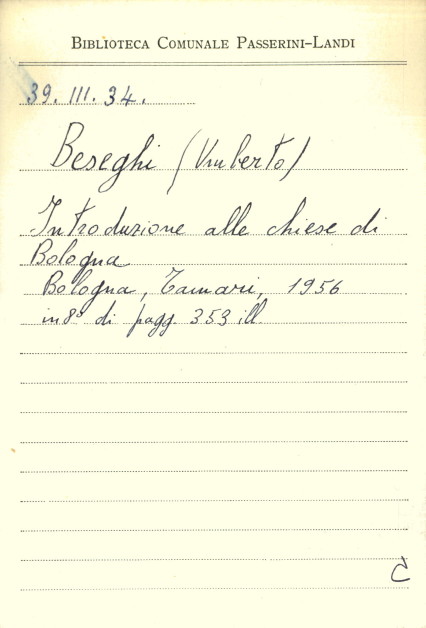 BIBLIOTECA COMUNALE PASSERINI-LANDI
39. III. 34.
Beseghi (Umberto)
Introduzione alle chiese di
Bologna
Bologna, Tamari, 1956
in 8° di pagg. 353 ill
C